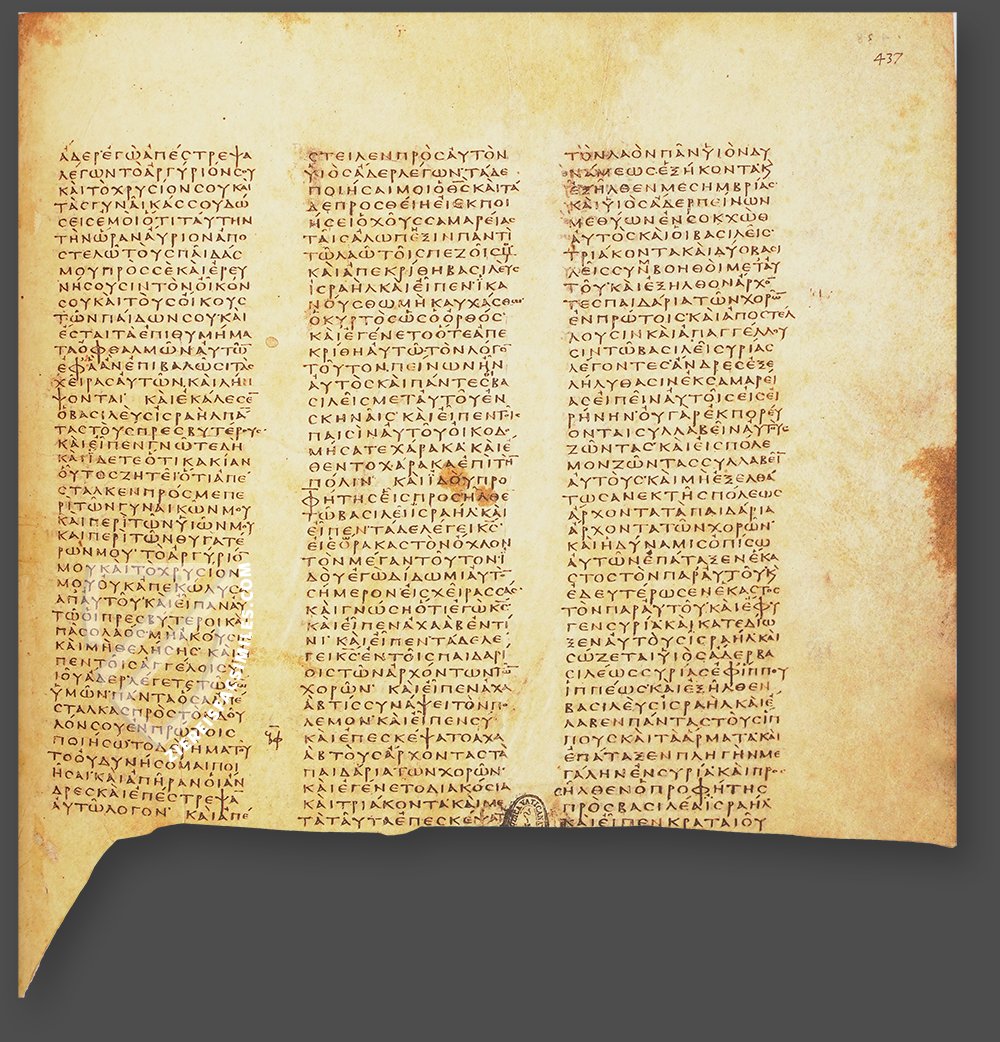 ΑΔΕΡΕΓΩΑΠΕϹΤΡΕΨΑ
ΛΕΓΩΝΤΟΑΡΓΥΡΙΟΝϹΟΥ
ΚΑΙΤΟΧΡΥϹΙΟΝϹΟΥΚΑΙ
ΤΑϹΓΥΝΑΙΚΑϹϹΟΥΔΩ
ϹΕΙϹΕΜΟΙΟΤΙΤΑΥΤΗΝ
ΤΗΝΩΡΑΝΑΥΡΙΟΝΑΠΟ
ϹΤΕΛΩΤΟΥϹΠΑΙΔΑϹ
ΜΟΥΠΡΟϹϹΕΚΑΙΕΡΕΥ
ΝΗϹΟΥϹΙΝΤΟΝΟΙΚΟΝ
ϹΟΥΚΑΙΤΟΥϹΟΙΚΟΥϹ
ΤΩΝΠΑΙΔΩΝϹΟΥΚΑΙ
ΕϹΤΑΙΤΑΕΠΙΘΥΜΗΜΑ
ΤΑΟΦΘΑΛΜΩΝΑΥΤΩ̅
ΕΦΑΑΝΕΠΙΒΑΛΩϹΙΤΑϹ
ΧΕΙΡΑϹΑΥΤΩΝΚΑΙΛΗΜ
ΨΟΝΤΑΙ ΚΑΙΕΚΑΛΕϹΕ̅
ΟΒΑϹΙΛΕΥϹΙϹΡΑΗΛΠΑ̅
ΤΑϹΤΟΥϹΠΡΕϹΒΥΤΕΡΟΥϹ
ΚΑΙΕΙΠΕΝΓΝΩΤΕΔΗ
ΚΑΙΙΔΕΤΕΟΤΙΚΑΚΙΑΝ
ΟΥΤΟϹΖΗΤΕΙΟΤΙΑΠΕ
ϹΤΑΛΚΕΝΠΡΟϹΜΕΠΕ
ΡΙΤΩΝΓΥΝΑΙΚΩΝΜΟΥ
ΚΑΙΠΕΡΙΤΩΝΥΙΩΝΜΟΥ
ΚΑΙΠΕΡΙΤΩΝΘΥΓΑΤΕ
ΡΩΝΜΟΥΤΟΑΡΓΥΡΙΟ̅
ΜΟΥΚΑΙΤΟΧΡΥϹΙΟΝ
ΜΟΥΟΥΚΑΠΕΚΩΛΥϹΑ
ΑΠΑΥΤΟΥΚΑΙΕΙΠΑΝΑΥ
ΤΩΟΙΠΡΕϹΒΥΤΕΡΟΙΚΑΙ
ΠΑϹΟΛΑΟϹΜΗΑΚΟΥϹΗϹ
ΚΑΙΜΗΘΕΛΗϹΗϹ ΚΑΙΕΙ
ΠΕΝΤΟΙϹΑΓΓΕΛΟΙϹΥ
ΙΟΥΑΔΕΡΛΕΓΕΤΕΤΩΚΩ
ΥΜΩΝΠΑΝΤΑΟϹΑΑΠΕ
ϹΤΑΛΚΑϹΠΡΟϹΤΟΝΔΟΥ
ΛΟΝϹΟΥΕΝΠΡΩΤΟΙϹ
ΠΟΙΗϹΩΤΟΔΕΡΗΜΑΤΟΥ
ΤΟΟΥΔΥΝΗϹΟΜΑΙΠΟΙ
ΗϹΑΙΚΑΙΑΠΗΡΑΝΟΙΑΝ
ΔΡΕϹΚΑΙΕΠΕϹΤΡΕΨΑ̅
ΑΥΤΩΛΟΓΟΝ ΚΑΙΑΠΕ
ϹΤΕΙΛΕΝΠΡΟϹΑΥΤΟΝ
ΥΙΟϹΑΔΕΡΛΕΓΩΝΤΑΔΕ
ΠΟΙΗϹΑΙΜΟΙΟΘ̅Ϲ̅ΚΑΙΤΑ
ΔΕΠΡΟϹΘΕΙΗΕΙΕΚΠΟΙ
ΗϹΕΙΟΧΟΥϹϹΑΜΑΡΕΙΑϹ
ΤΑΙϹΑΛΩΠΕΞΙΝΠΑΝΤΙ
ΤΩΛΑΩΤΟΙϹΠΕΖΟΙϹΜΟΥ
ΚΑΙΑΠΕΚΡΙΘΗΒΑϹΙΛΕΥϹ
ΙϹΡΑΗΛΚΑΙΕΙΠΕΝΙΚΑ
ΝΟΥϹΘΩΜΗΚΑΥΧΑϹΘΩ
ΟΚΥΡΤΟϹΩϹΟΟΡΘΟϹ
ΚΑΙΕΓΕΝΕΤΟΟΤΕΑΠΕ
ΚΡΙΘΗΑΥΤΩΤΟΝΛΟΓΟ̅
ΤΟΥΤΟΝΠΕΙΝΩΝΗΝ
ΑΥΤΟϹΚΑΙΠΑΝΤΕϹΒΑ
ϹΙΛΕΙϹΜΕΤΑΥΤΟΥΕΝ
ϹΚΗΝΑΙϹ ΚΑΙΕΙΠΕΝΤΟΙϹ
ΠΑΙϹΙΝΑΥΤΟΥΟΙΚΟΔΟ
ΜΗϹΑΤΕΧΑΡΑΚΑΚΑΙΕ
ΘΕΝΤΟΧΑΡΑΚΑΕΠΙΤΗ̅
ΠΟΛΙΝ ΚΑΙΙΔΟΥΠΡΟ
ΦΗΤΗϹΕΙϹΠΡΟϹΗΛΘΕ
ΤΩΒΑϹΙΛΕΙΙϹΡΑΗΛΚΑΙ
ΕΙΠΕΝΤΑΔΕΛΕΓΕΙΚ̅Ϲ̅
ΕΙΕΟΡΑΚΑϹΤΟΝΟΧΛΟΝ
ΤΟΝΜΕΓΑΝΤΟΥΤΟΝΙ
ΔΟΥΕΓΩΔΙΔΩΜΙΑΥΤΟ̅
ϹΗΜΕΡΟΝΕΙϹΧΕΙΡΑϹϹΑϹ
ΚΑΙΓΝΩϹΗΟΤΙΕΓΩΚ̅Ϲ̅
ΚΑΙΕΙΠΕΝΑΧΑΑΒΕΝΤΙ
ΝΙ ΚΑΙΕΙΠΕΝΤΑΔΕΛΕ
ΓΕΙΚ̅Ϲ̅ΕΝΤΟΙϹΠΑΙΔΑΡΙ
ΟΙϹΤΩΝΑΡΧΟΝΤΩΝΤΩ̅
ΧΟΡΩΝ ΚΑΙΕΙΠΕΝΑΧΑ
ΑΒΤΙϹϹΥΝΑΨΕΙΤΟΝΠΟ
ΛΕΜΟΝΚΑΙΕΙΠΕΝϹΥ
ΚΑΙΕΠΕϹΚΕΨΑΤΟΑΧΑ
ΑΒΤΟΥϹΑΡΧΟΝΤΑϹΤΑ
ΠΑΙΔΑΡΙΑΤΩΝΧΟΡΩΝ
ΚΑΙΕΓΕΝϹΤΟΔΙΑΚΟϹΙΑ
ΚΑΙΤΡΙΑΚΟΝΤΑΚΑΙΜΕ
ΤΑΤΑΥΤΑΕΠΕϹΚΕΨΑΤΟ
ΤΟΝΛΑΟΝΠΑΝΥΙΟΝΔΥ
ΝΑΜΕΩϹΕΞΗΚΟΝΤΑΚΑΙ
ΕΞΗΛΘΕΝΜΕϹΗΜΒΡΙΑϹ
ΚΑΙΥΙΟϹΑΔΕΡΠΕΙΝΩΝ
ΜΕΘΥΩΝΕΝϹΟΚΧΩΘ
ΑΥΤΟϹΚΑΙΟΙΒΑϹΙΛΕΙϹ
ΤΡΙΑΚΟΝΤΑΚΑΙΔΥΟΒΑϹΙ
ΛΕΙϹϹΥΝΒΟΗΘΟΙΜΕΤΑΥ
ΤΟΥΚΑΙΕΞΗΛΘΟΝΑΡΧΟ̅
ΤΕϹΠΑΙΔΑΡΙΑΤΩΝΧΟΡΩ̅
ΕΝΠΡΩΤΟΙϹΚΑΙΑΠΟϹΤΕΛ
ΛΟΥϹΙΝΚΑΙΑΠΑΓΓΕΛΛΟΥ
ϹΙΝΤΩΒΑϹΙΛΕΙϹΥΡΙΑϹ
ΛΕΓΟΝΤΕϹΑΝΔΡΕϹΕΞΕ
ΛΗΛΥΘΑϹΙΝΕΚϹΑΜΑΡΕΙ
ΑϹΕΙΠΕΙΝΑΥΤΟΙϹΕΙϹΕΙ
ΡΗΝΗΝΟΥΓΑΡΕΚΠΟΡΕΥ
ΟΝΤΑΙϹΥΛΛΑΒΕΙΝΑΥΤΟΥϹ
ΖΩΝΤΑϹΚΑΙΕΙϹΠΟΛΕ
ΜΟΝΖΩΝΤΑϹϹΥΛΛΑΒΕΙ̅
ΑΥΤΟΥϹΚΑΙΜΗΕΞΕΛΘΑ
ΤΩϹΑΝΕΚΤΗϹΠΟΛΕΩϹ
ΑΡΧΟΝΤΑΤΑΠΑΙΔΑΡΙΑ
ΑΡΧΟΝΤΑΤΩΝΧΟΡΩΝ
ΚΑΙΗΔΥΝΑΜΙϹΟΠΙϹΩ
ΑΥΤΩΝΕΠΑΤΑΞΕΝΕΚΑ
ϹΤΟϹΤΟΝΠΑΡΑΥΤΟΥΚΑΙ
ΕΔΕΥΤΕΡΩϹΕΝΕΚΑϹΤΟϹ
ΤΟΝΠΑΡΑΥΤΟΥΚΑΙΕΦΥ
ΓΕΝϹΥΡΙΑΚΑΙΚΑΤΕΔΙΩ
ΞΕΝΑΥΤΟΥϹΙϹΡΑΗΛΚΑΙ
ϹΩΖΕΤΑΙΥΙΟϹΑΔΕΡΒΑ
ϹΙΛΕΩϹϹΥΡΙΑϹΕΦΙΠΠΟΥ
ΙΠΠΕΩϹΚΑΙΕΞΗΛΘΕΝ
ΒΑϹΙΛΕΥϹΙϹΡΑΗΛΚΑΙΕ
ΛΑΒΕΝΠΑΝΤΑϹΤΟΥϹΙΠ
ΠΟΥϹΚΑΙΤΑΑΡΜΑΤΑΚΑΙ
ΕΠΑΤΑΞΕΝΠΛΗΓΗΝΜΕ
ΓΑΛΗΝΕΝϹΥΡΙΑΚΑΙΠΡΟϹ
ΗΛΘΕΝΟΠΡΟΦΗΤΗϹ
ΠΡΟϹΒΑϹΙΛΕΑΙϹΡΑΗΛ
ΚΑΙΕΙΠΕΝΚΡΑΤΑΙΟΥ
437